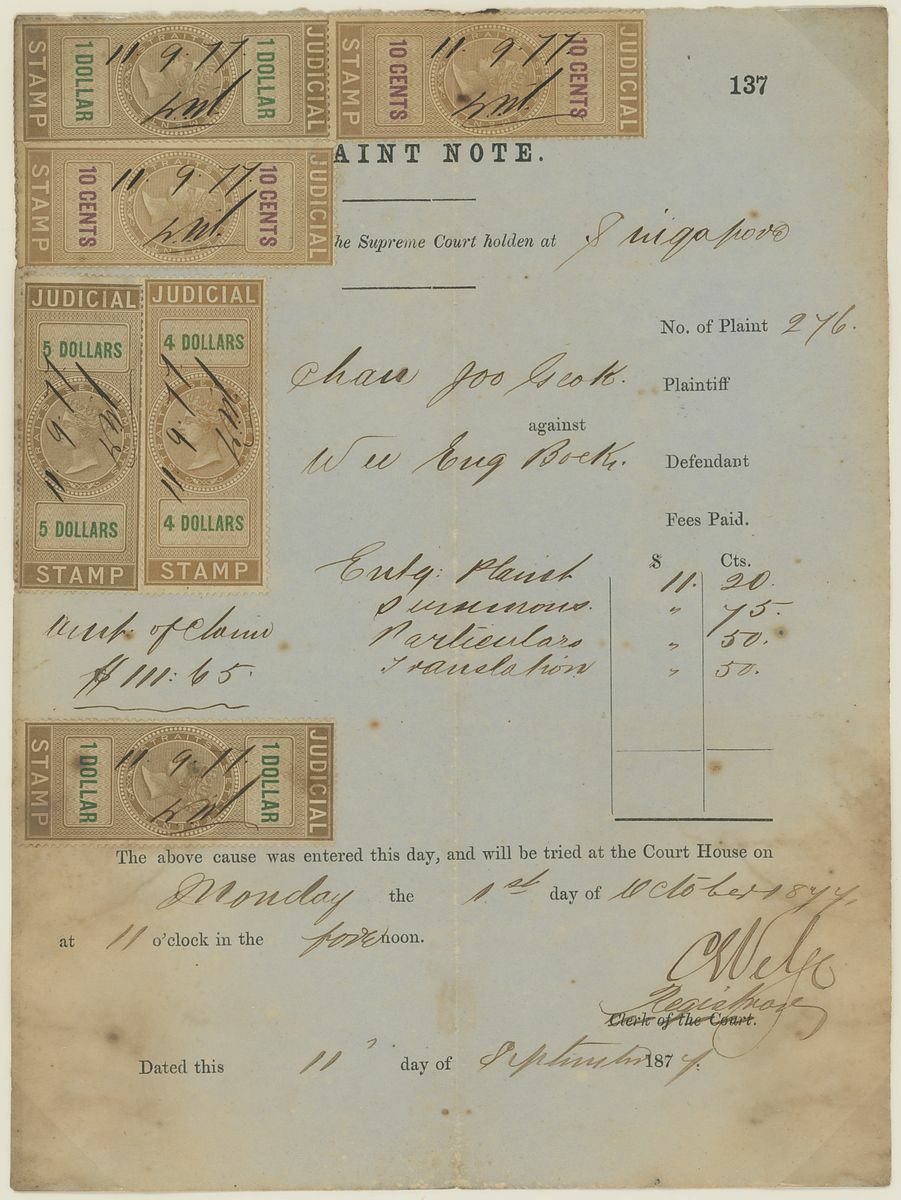 STAMP 1 DOLLAR 11.9.77. 1 DOLLAR JUDICIAL
STAMP 10 CENTS 11.9.77. 10 CENTS JUDICIAL
137
AINT NOTE.
STAMP 10 CENTS 11.9.77. 10 CENTS JUDICIAL
he Supreme Court holden at Singapore
JUDICIAL 5 DOLLARS 11.9.77 5 DOLLARS STAMP
JUDICIAL 4 DOLLARS 11.9.77 4 DOLLARS STAMP
No. of Plaint 276.
Chan Joo Geok. Plaintiff
against
Wee Eng Bock. Defendant
Fees Paid.
$ Cts.
Entg: Plaint 11. 20.
Summons. " 75.
Particulars " 50.
Translation " 50.
Amt. of Claim
$111:65.
STAMP 1 DOLLAR 11.9.77. 1 DOLLAR JUDICIAL
The above cause was entered this day, and will be tried at the Court House on
Monday the 1st day of October 1877.
at 11 o'clock in the forenoon.
Registrar
Clerk of the Court.
Dated this 11 day of September 1877.